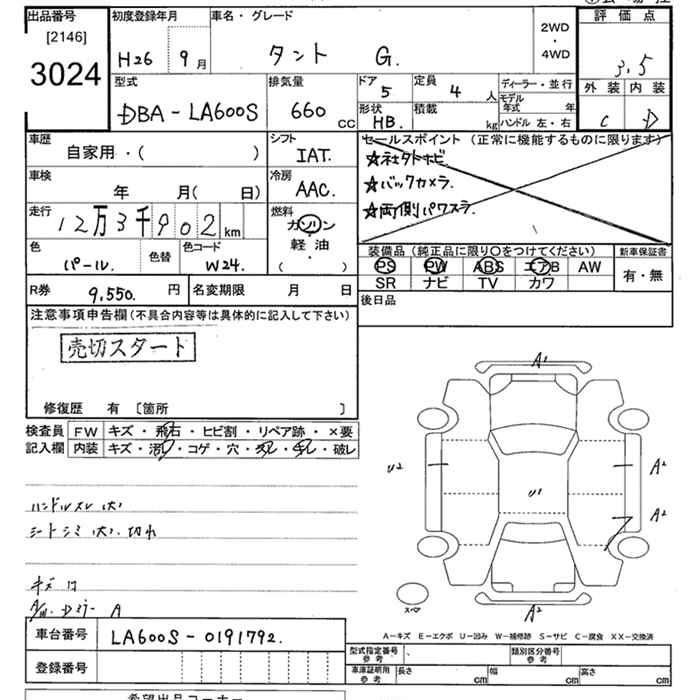 出品番号 初度登録年月 車名・グレード 評価点
[2146]
3024 H26 9月 タント G. 2WD・4WD 3.5
型式 排気量 ドア 定員 ディーラー・並行 外装 内装
DBA-LA600S 660 CC 5 4人 モデル年式 年 C D
形状 積載 ハンドル 左・右
HB. kg
車歴 シフト セールスポイント (正常に機能するものに限ります)
自家用・( ) IAT. ☆社外ナビ
車検 冷房 ☆バックカメラ.
年 月( 日) AAC. ☆両側パワスラ.
走行 燃料
12万3千902km ガソリン
軽油
( )
色 色替 色コード 装備品 (純正品に限り○をつけてください) 新車保証書
パール. W24. PS PW ABS エアB AW 有・無
SR ナビ TV カワ
R券 9,550.円 名変期限 月 日 後日品
注意事項申告欄(不具合内容等は具体的に記入して下さい)
売切スタート
修復歴 有 〔箇所 〕
検査員 FW キズ・飛石・ヒビ割・リペア跡・×要
記入欄 内装 キズ・汚レ・コゲ・穴・スレ・キレ・破レ
A1
U2
U1
A2
A2
A2
スペア
ハンドルスレ(大)
シートシミ(大). 切れ
キズ
A
A−キズ E−エクボ U−凹み W−補修跡 S−サビ C−腐食 XX−交換済
車台番号 LA600S-0191792.
登録番号
型式指定番号 参考 類別区分番号 参考
車庫証明用 参考 長さ cm 幅 cm 高さ cm
希望出品コーナー